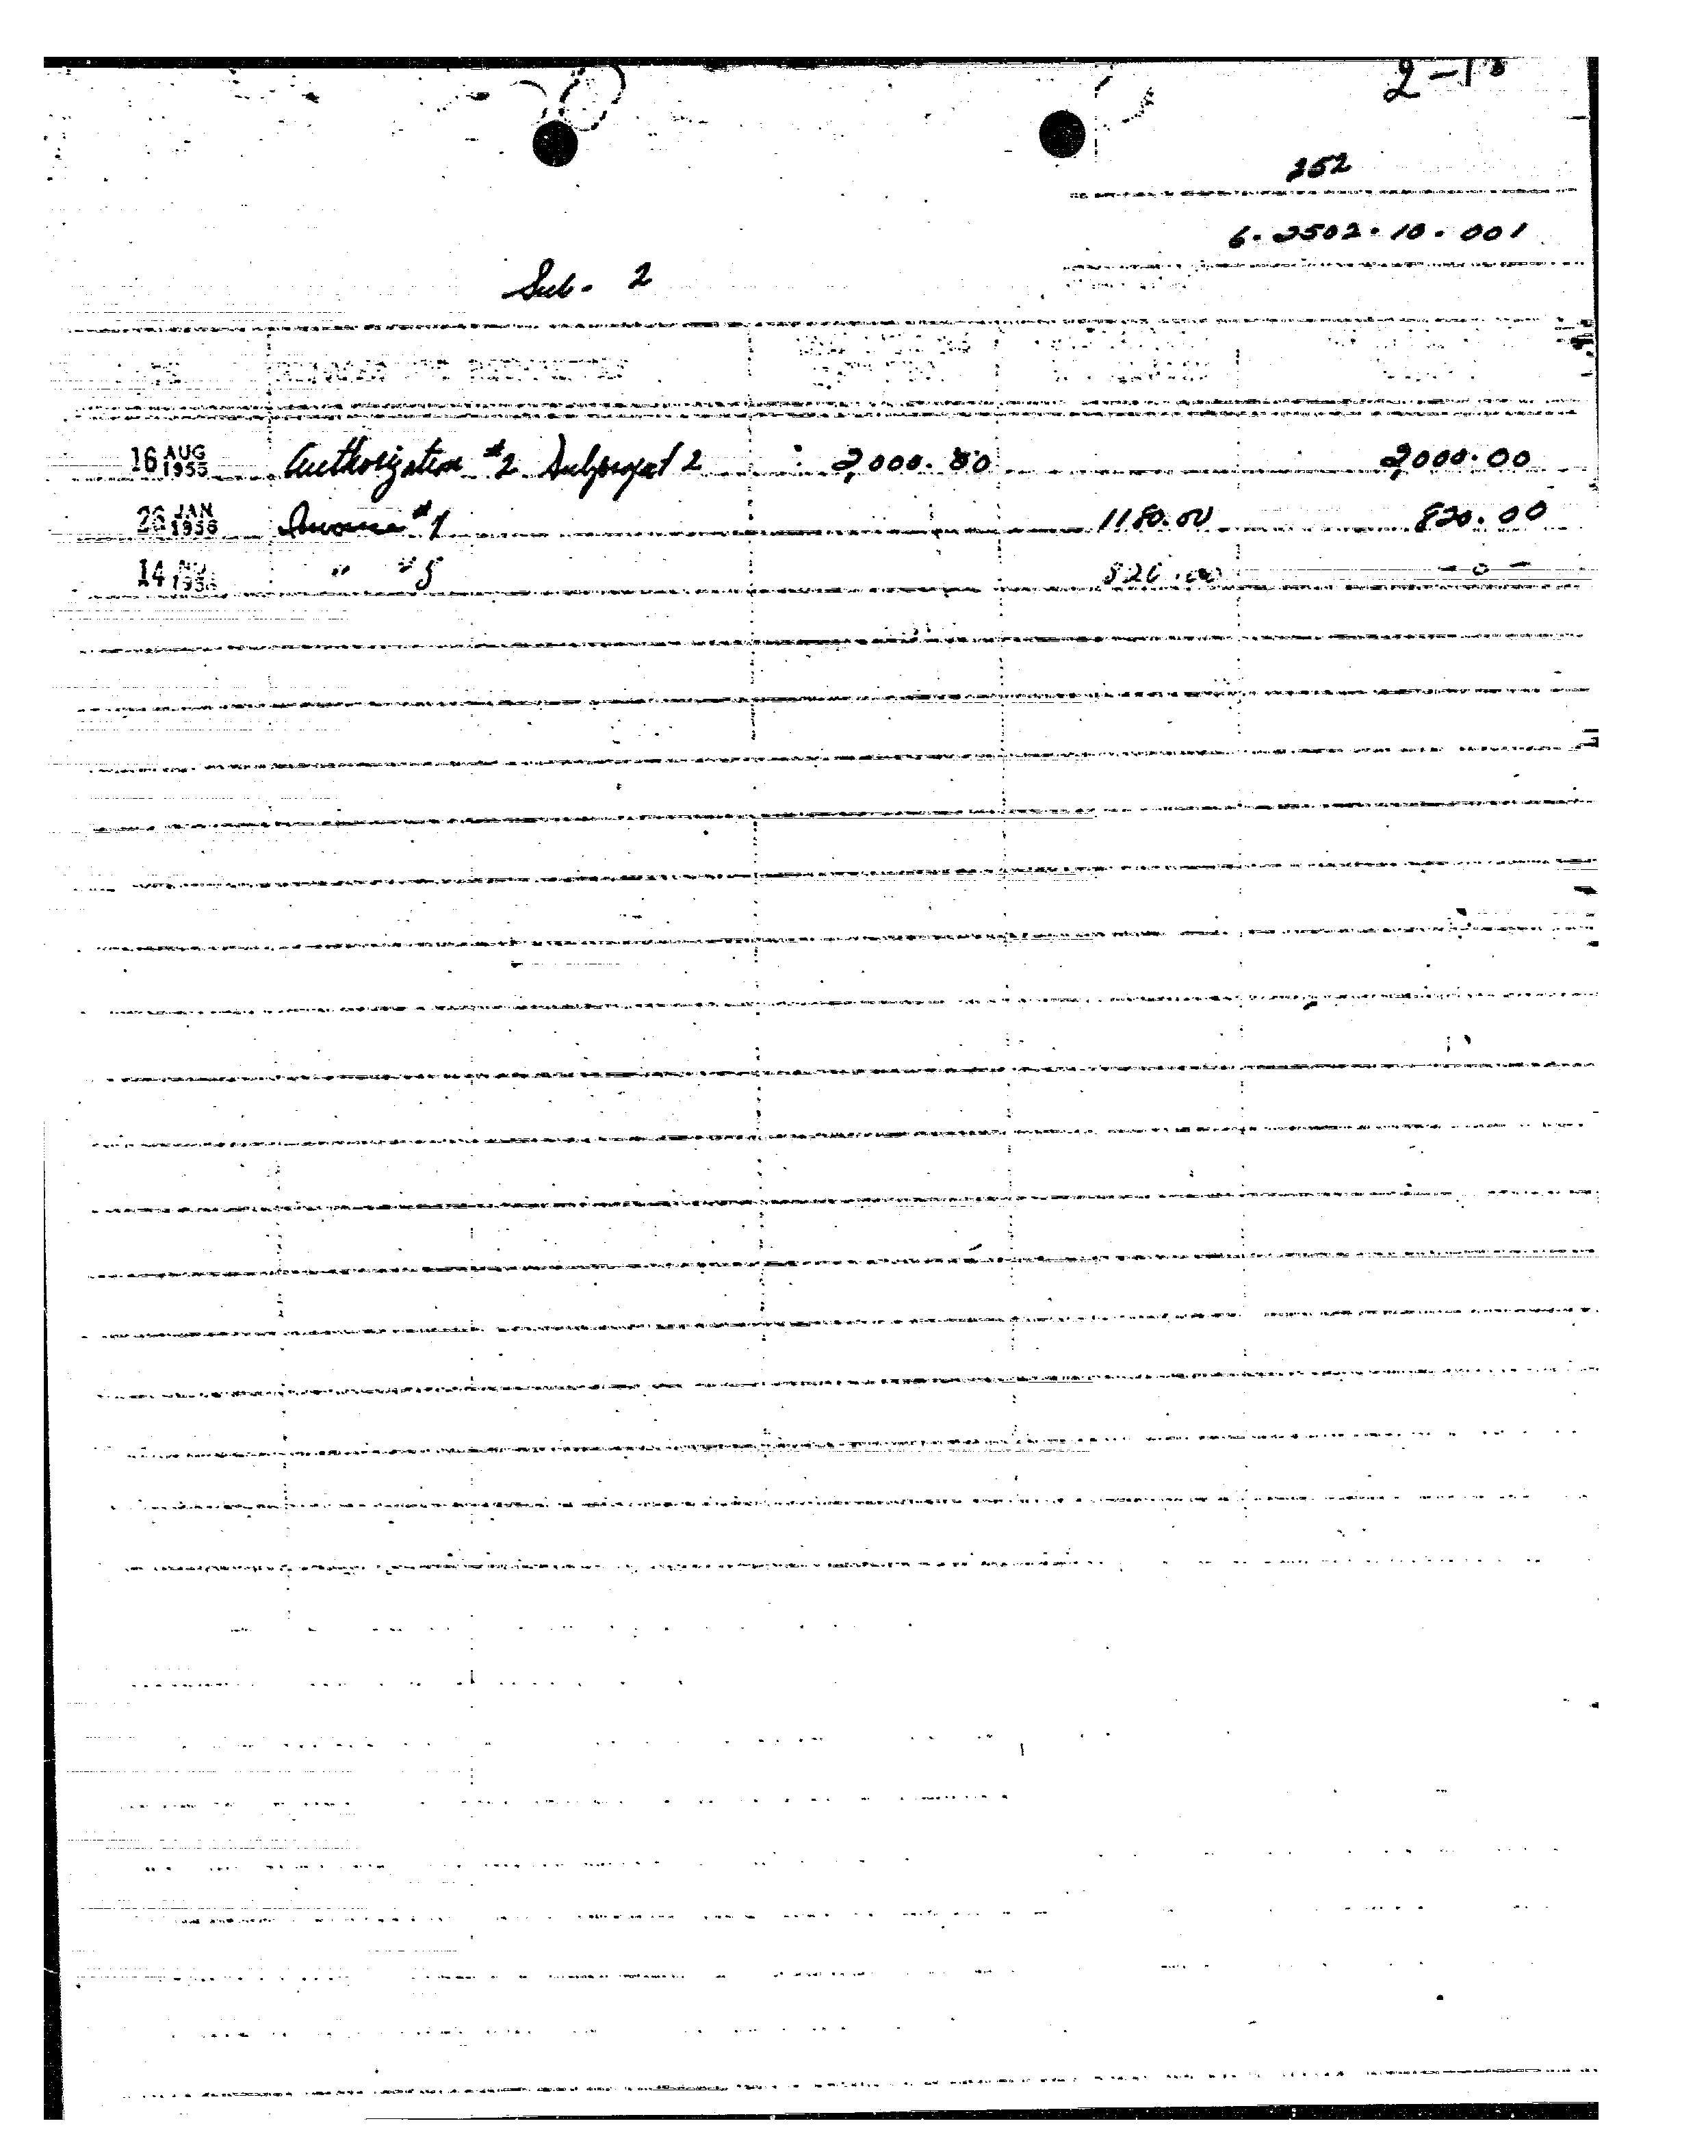 2-18
252
6-2502-10-001
Sub- 2
16 AUG 1955 Authorization #2 Subproject 2 2,000.00 2,000.00
26 JAN 1956 Invoice #1 1180.00 820.00
14 " #5 820.00 -0-